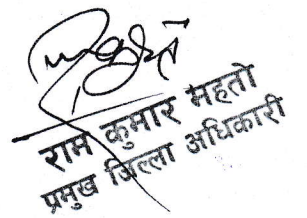 राम कुमार महतो
प्रमुख जिल्ला अधिकारी